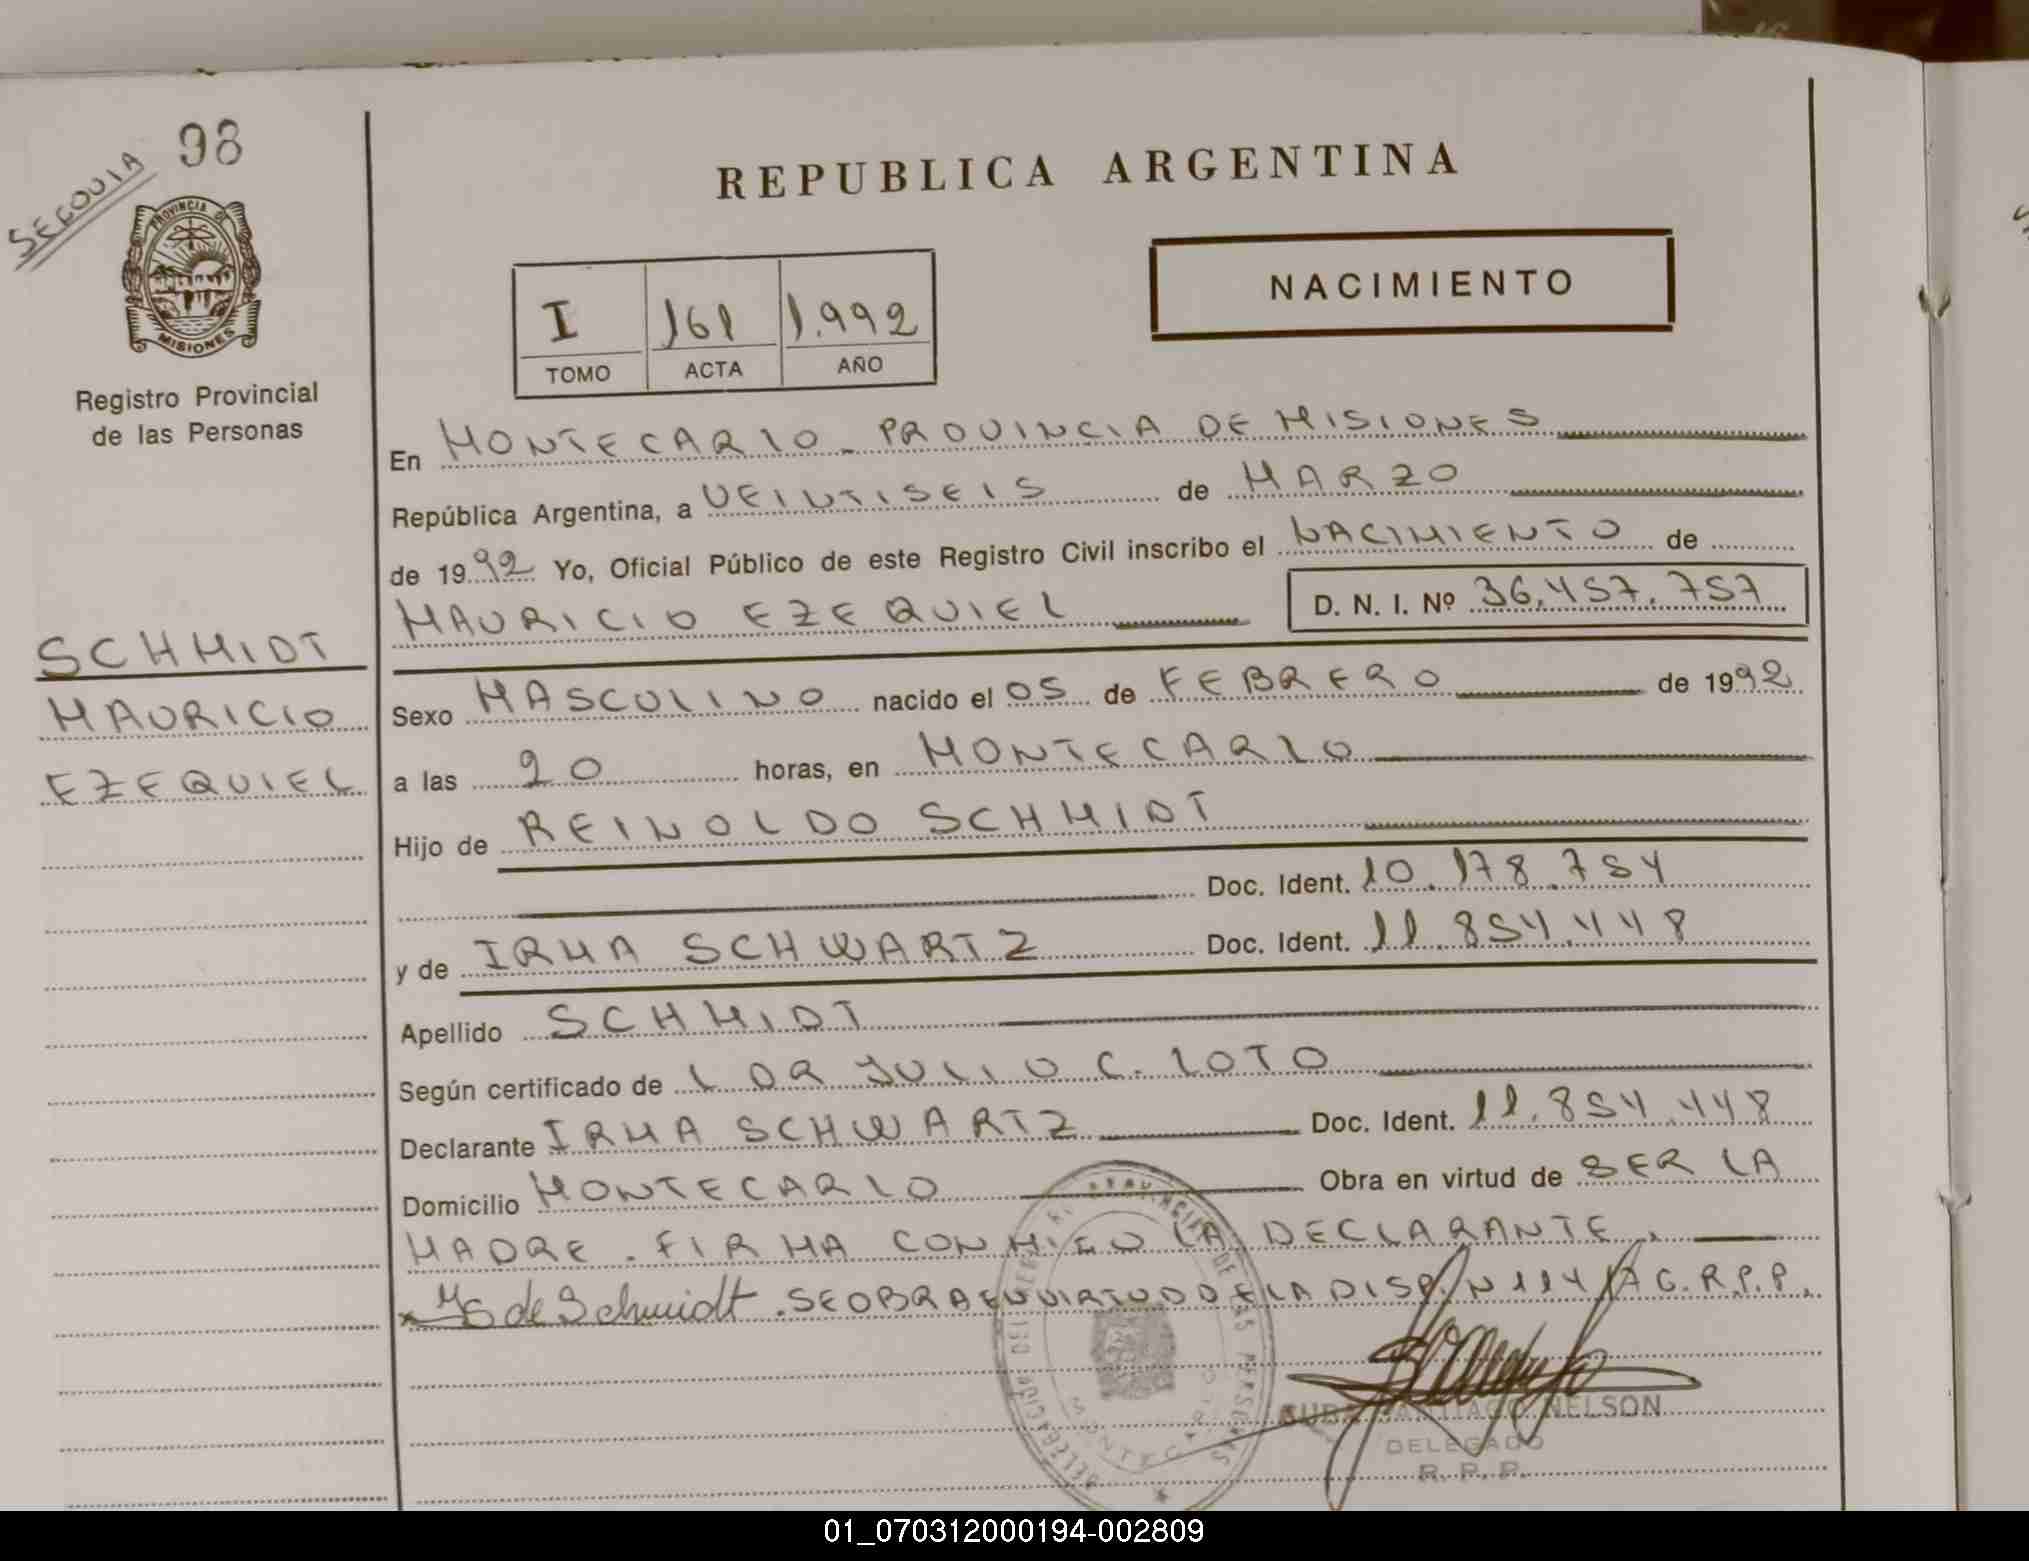 98
SEGOVIA
PROVINCIA DE
MISIONES
Registro Provincial
de las Personas
SCHMIDT
MAURICIO
EZEQUIEL
REPUBLICA ARGENTINA
NACIMIENTO
I 161 1.992
TOMO ACTA AÑO
En MONTECARLO - PROVINCIA DE MISIONES
República Argentina, a VEINTISEIS de MARZO
de 1992 Yo, Oficial Público de este Registro Civil inscribo el NACIMIENTO de
MAURICIO EZEQUIEL D. N. I. Nº 36.457.757
Sexo MASCULINO nacido el 05 de FEBRERO de 1992
a las 20 horas, en MONTECARLO
Hijo de REINOLDO SCHMIDT
Doc. Ident. 10.178.754
y de IRMA SCHWARTZ Doc. Ident. 11.854.448
Apellido SCHMIDT
Según certificado de L DR JULIO C. LOTO
Declarante IRMA SCHWARTZ Doc. Ident. 11.854.448
Domicilio MONTECARLO Obra en virtud de SER LA
MADRE. FIRMA CONMIGO LA DECLARANTE.
de Schmidt. SE OBRA EN VIRTUD DE LA DISP. N 114 G.R.P.P.
SANTIAGO NELSON
DELEGADO
R. P. P.
MONTECARLO
01_070312000194-002809